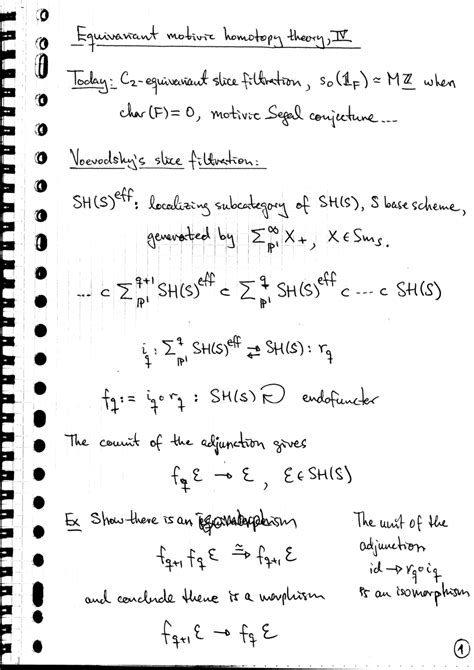 Equivariant motivic homotopy theory, IV
Today: C₂-equivariant slice filtration, s₀(𝟙_F) ≃ Mℤ when
char(F) = 0, motivic Segal conjecture ...
Voevodsky's slice filtration:
SH(S)^eff : localizing subcategory of SH(S), S base scheme,
generated by Σ^∞_ℙ¹ X₊, X ∈ Sm_S.
... ⊂ Σ^{q+1}_ℙ¹ SH(S)^eff ⊂ Σ^q_ℙ¹ SH(S)^eff ⊂ ... ⊂ SH(S)
i_q : Σ^q_ℙ¹ SH(S)^eff ⇄ SH(S) : r_q
f_q := i_q ∘ r_q : SH(S) ↻ endofunctor
The counit of the adjunction gives
f_q ℰ → ℰ, ℰ ∈ SH(S)
Ex Show there is an isomorphism
f_{q+1} f_q ℰ ≅→ f_{q+1} ℰ
and conclude there is a morphism
f_{q+1} ℰ → f_q ℰ
The unit of the
adjunction
id → r_q ∘ i_q
is an isomorphism
1